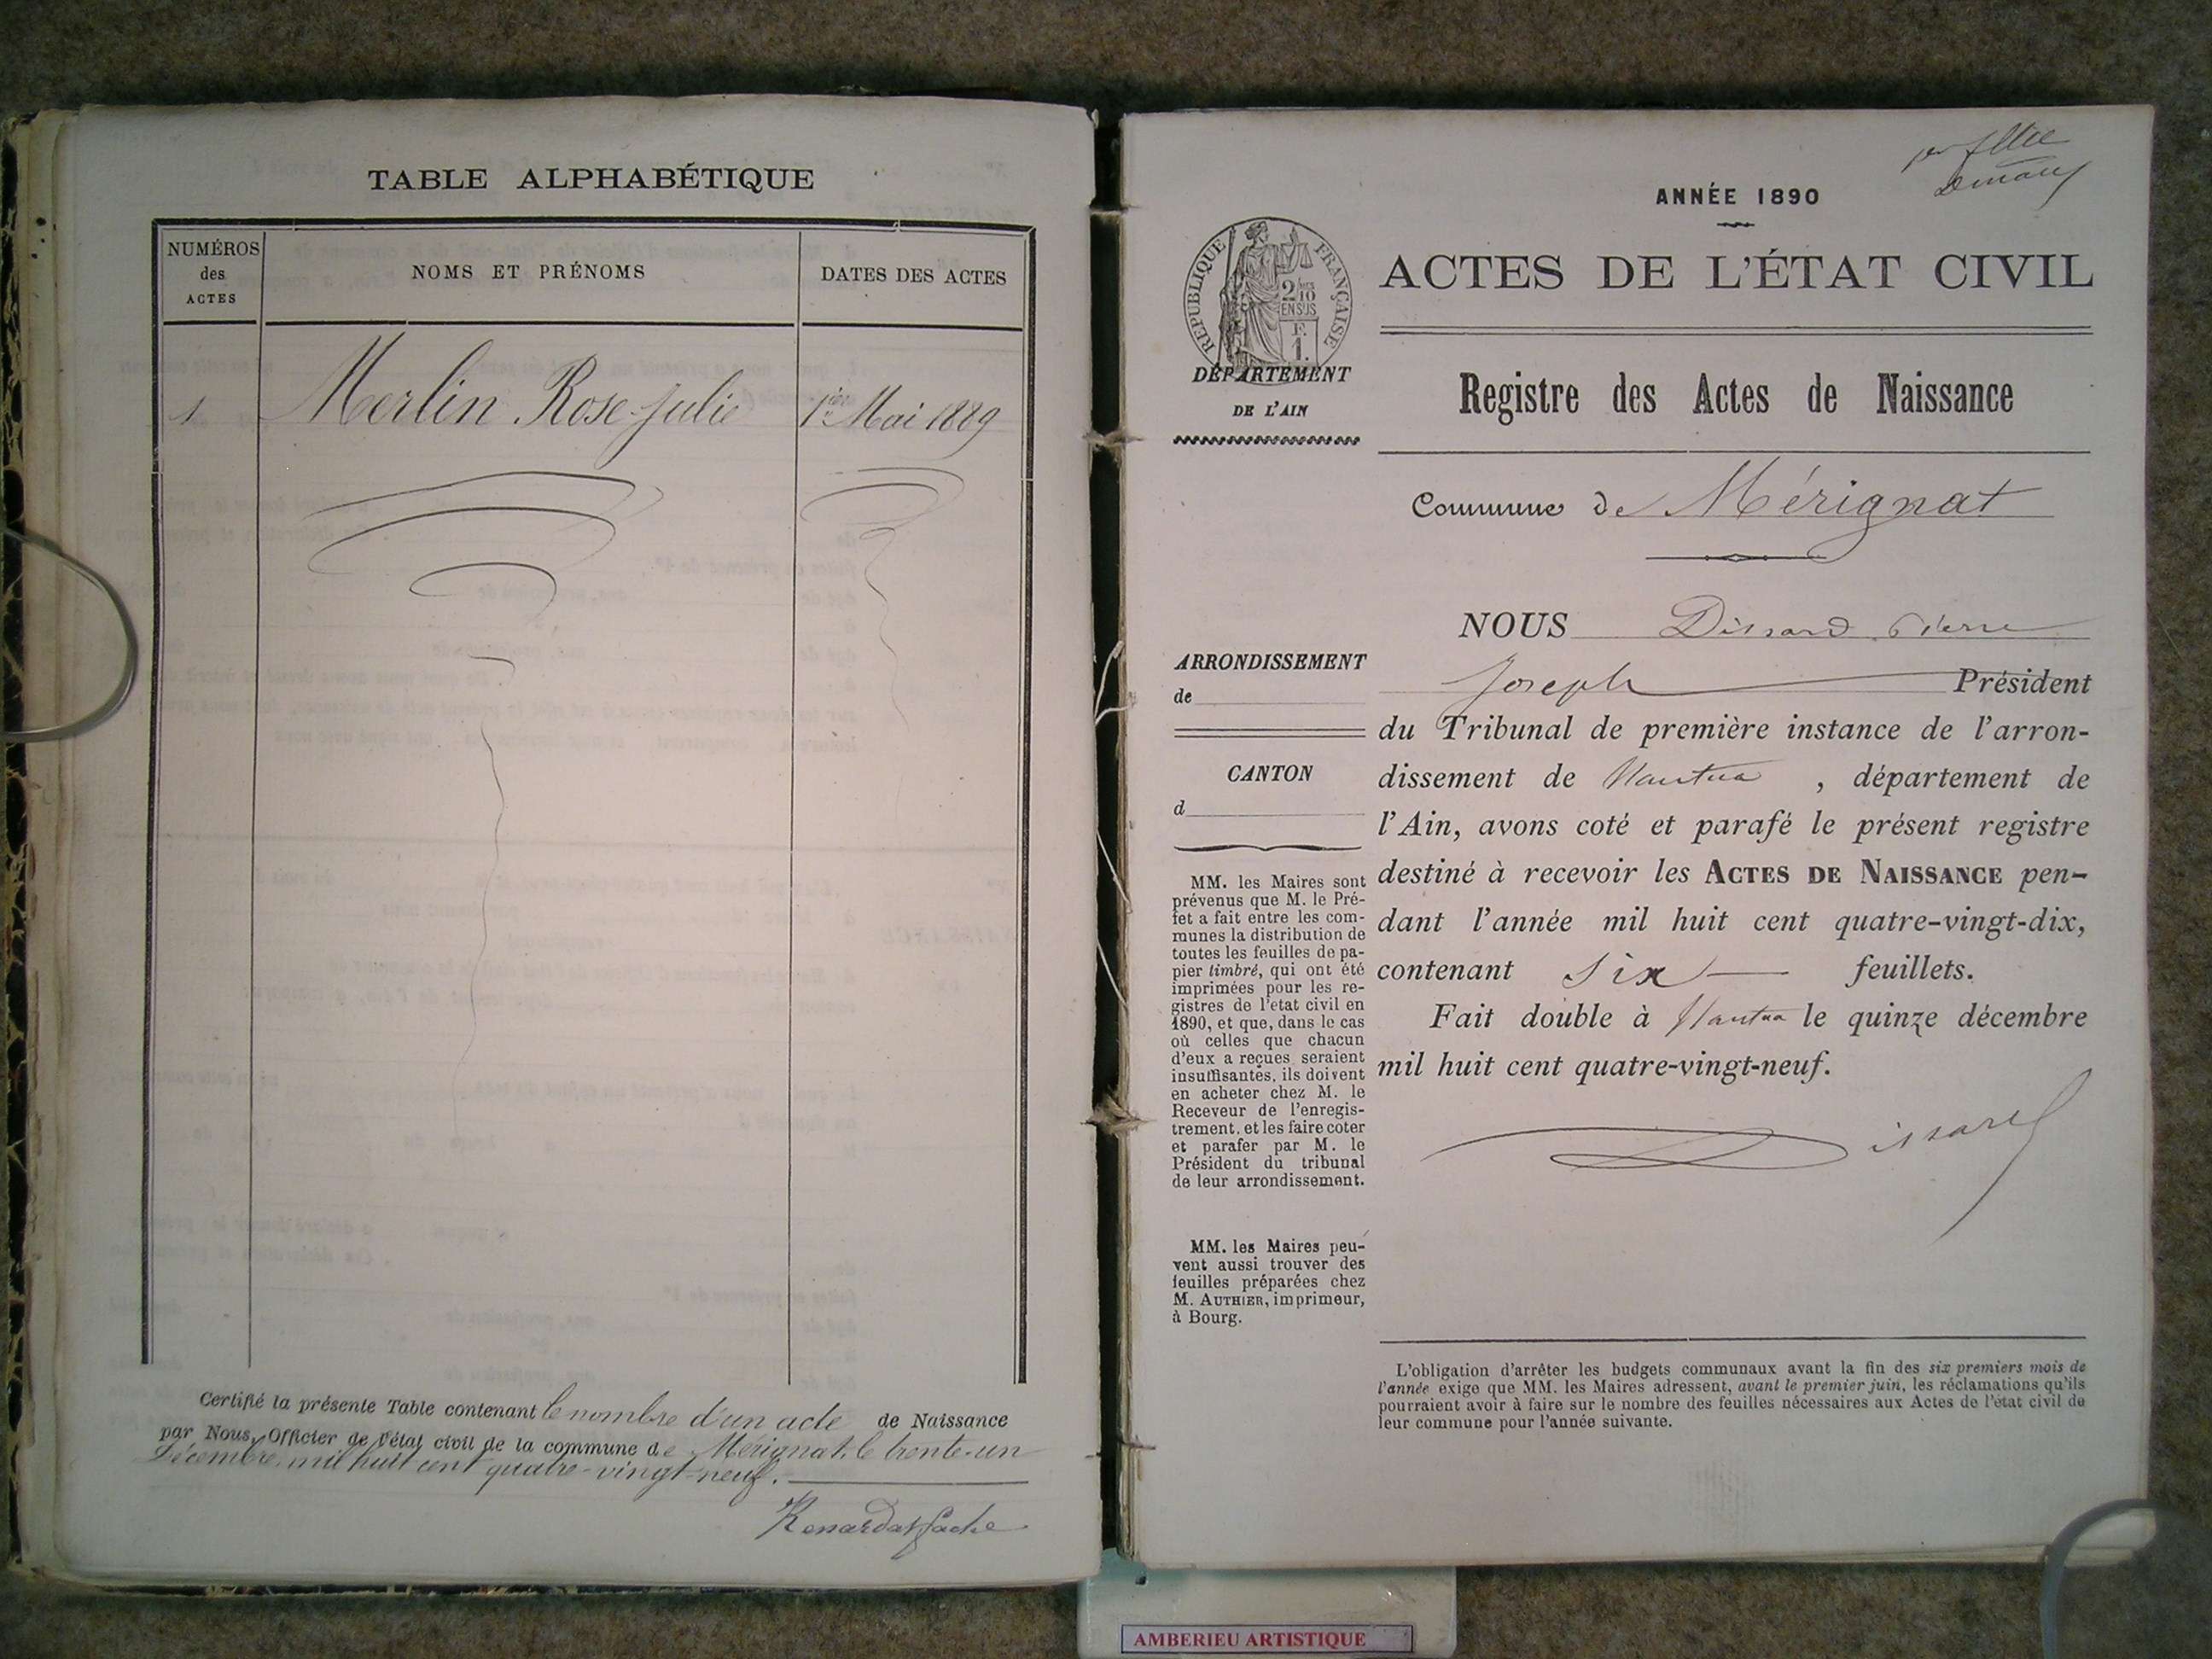 TABLE ALPHABÉTIQUE
NUMÉROS
des
ACTES
NOMS ET PRÉNOMS
DATES DES ACTES
1 Merlin Rose-Julie 1er Mai 1889
Certifié la présente Table contenant le nombre d'un acte de Naissance
par Nous, Officier de l'état civil de la commune de Mérignat, le trente-un
Décembre mil huit cent quatre-vingt-neuf.
ANNÉE 1890
RÉPUBLIQUE FRANÇAISE
2/10
EN SUS
F.
1.
DÉPARTEMENT
DE L'AIN
ACTES DE L'ÉTAT CIVIL
Registre des Actes de Naissance
Commune de Mérignat
ARRONDISSEMENT
de
CANTON
d
MM. les Maires sont
prévenus que M. le Pré-
fet a fait entre les com-
munes la distribution de
toutes les feuilles de pa-
pier timbré, qui ont été
imprimées pour les re-
gistres de l'etat civil en
1890, et que, dans le cas
où celles que chacun
d'eux a reçues seraient
insuffisantes, ils doivent
en acheter chez M. le
Receveur de l'enregis-
trement, et les faire coter
et parafer par M. le
Président du tribunal
de leur arrondissement.
MM. les Maires peu-
vent aussi trouver des
feuilles préparées chez
M. AUTHIER, imprimeur,
à Bourg.
NOUS Dissard Pierre
Joseph Président
du Tribunal de première instance de l'arron-
dissement de Nantua, département de
l'Ain, avons coté et parafé le présent registre
destiné à recevoir les ACTES DE NAISSANCE pen-
dant l'année mil huit cent quatre-vingt-dix,
contenant six feuillets.
Fait double à Nantua le quinze décembre
mil huit cent quatre-vingt-neuf.
Dissard
L'obligation d'arrêter les budgets communaux avant la fin des six premiers mois de
l'année exige que MM. les Maires adressent, avant le premier juin, les réclamations qu'ils
pourraient avoir à faire sur le nombre des feuilles nécessaires aux Actes de l'état civil de
leur commune pour l'année suivante.
AMBERIEU ARTISTIQUE